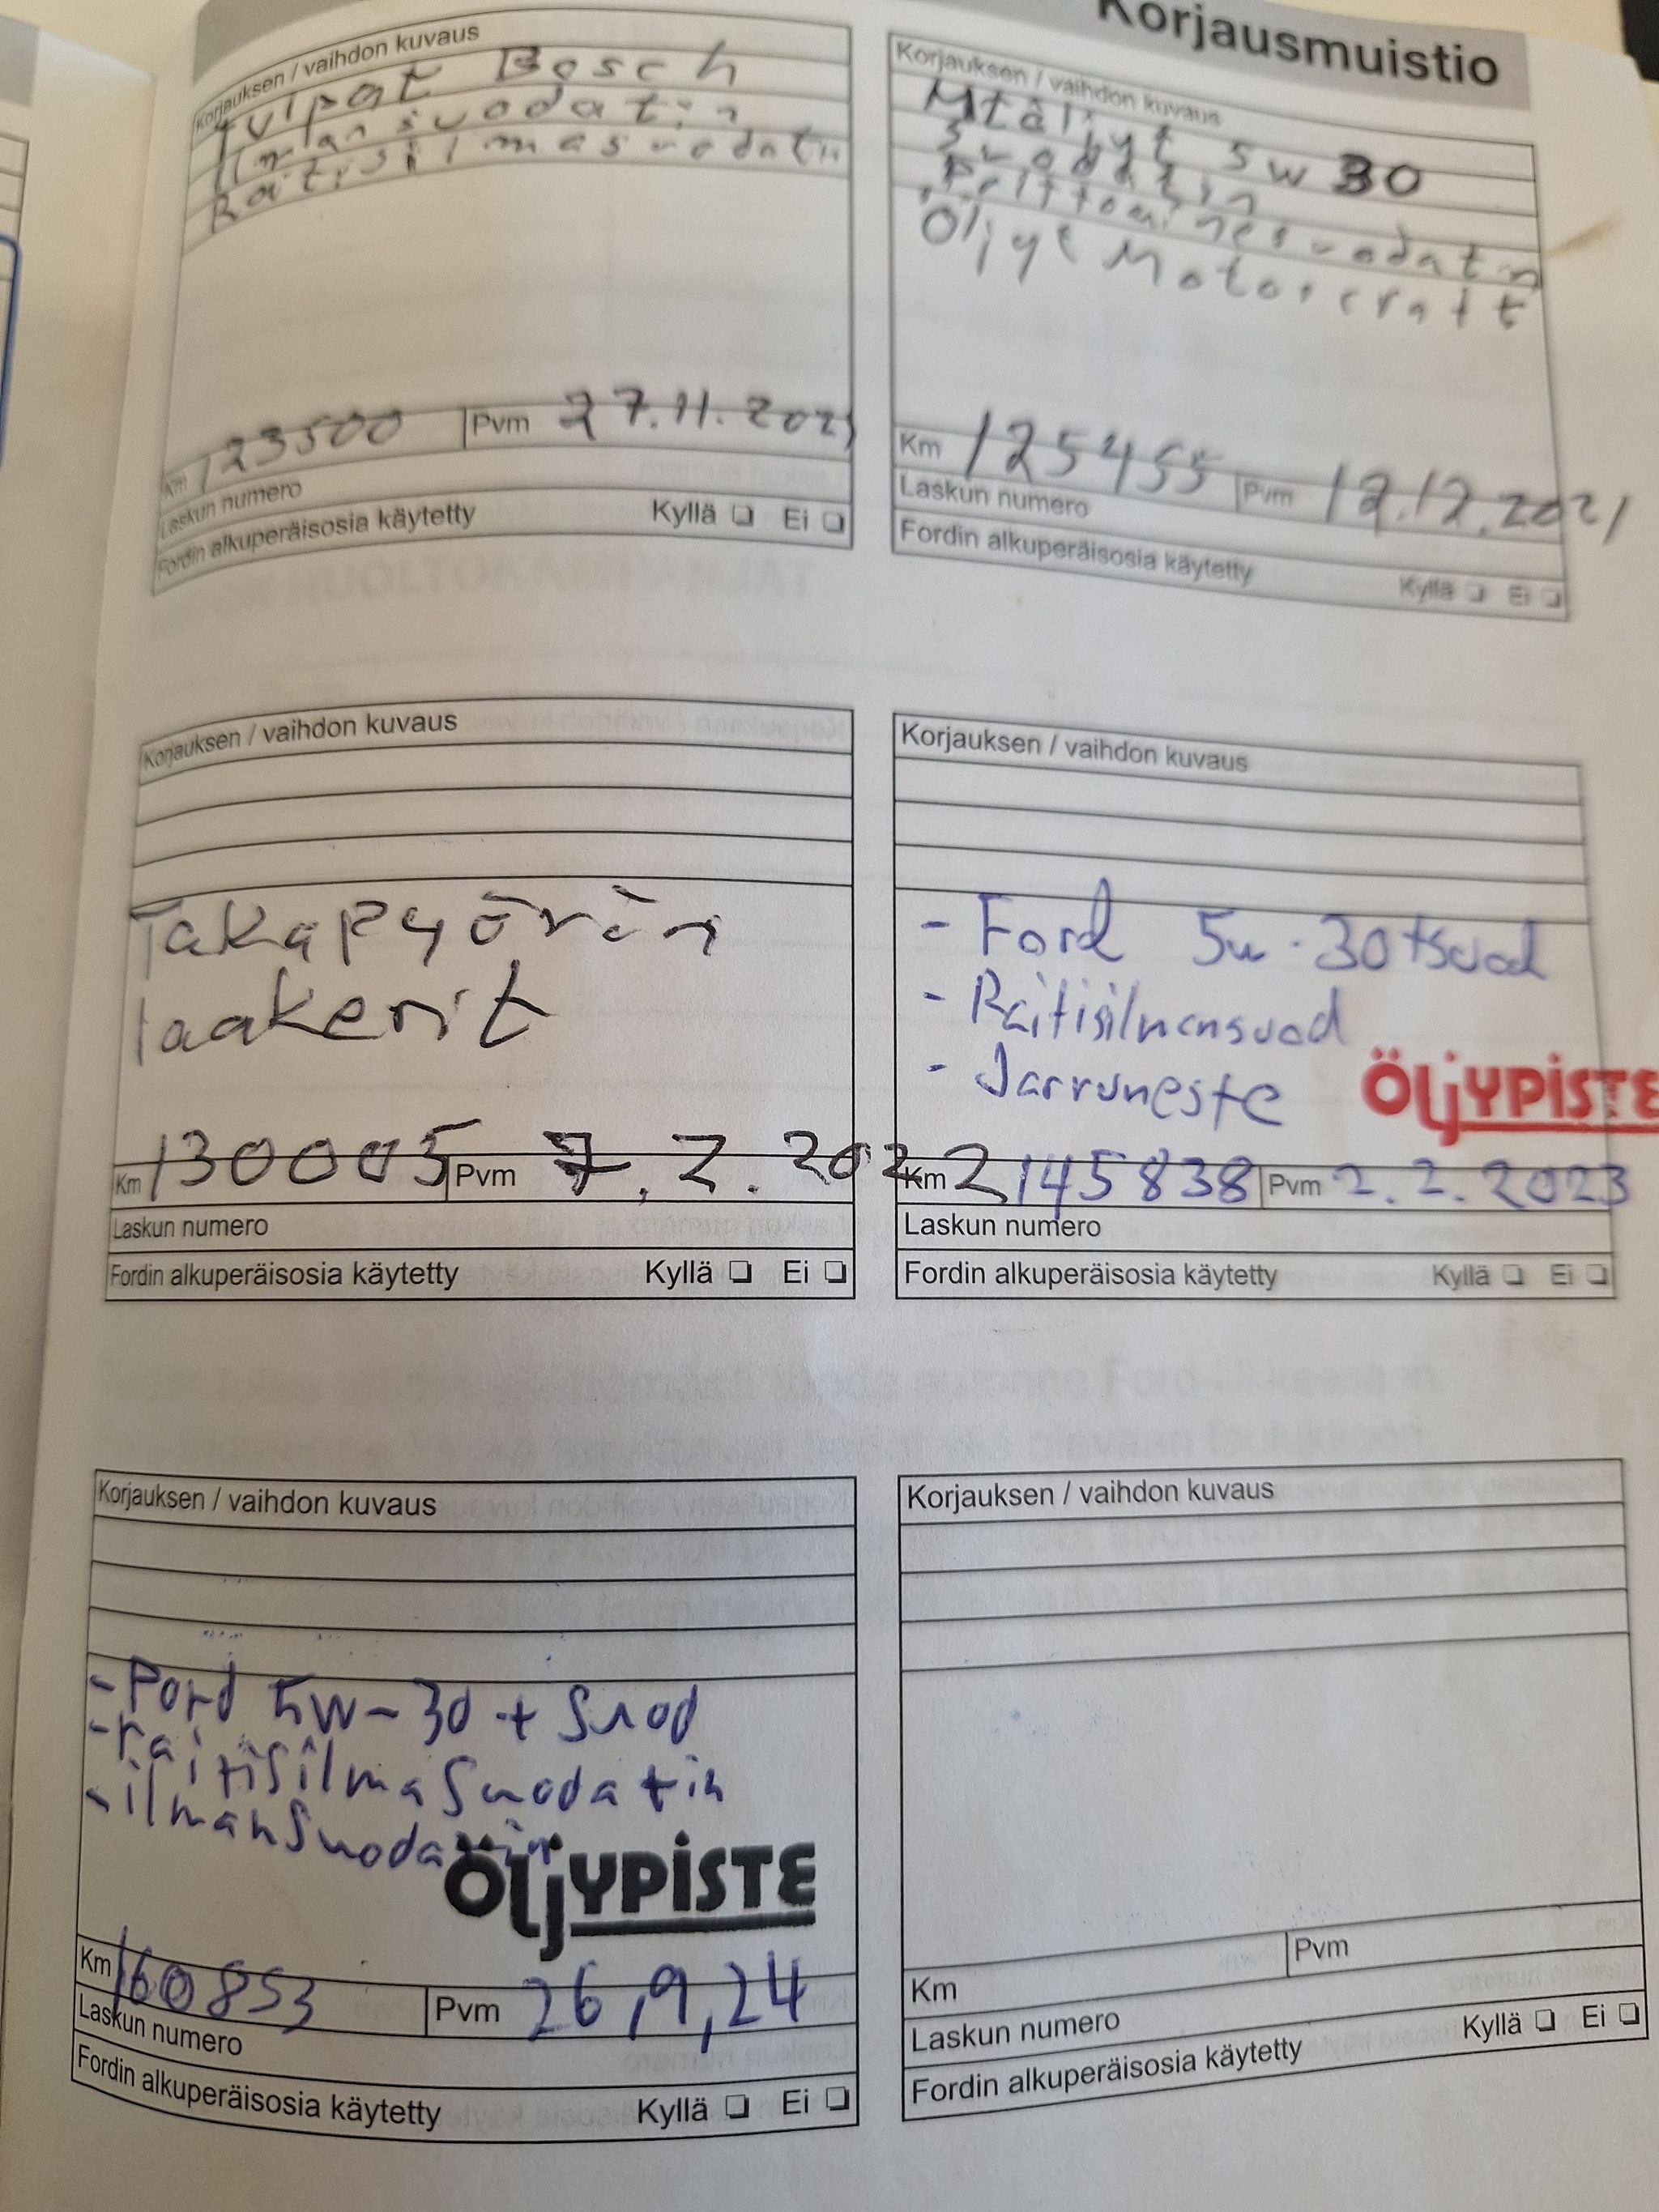 Korjausmuistio
Korjauksen / vaihdon kuvaus
Tulpat Bosch
Ilmansuodatin
Raitisilmasuodatin
Km 123500 Pvm 27.11.2021
Laskun numero
Fordin alkuperäisosia käytetty Kyllä Ei
Korjauksen / vaihdon kuvaus
Mtäljyt 5w 30
Suodatin
Polttoainesuodatin
Öljyt Motorcraft
Km 125455 Pvm 12.12.2021
Laskun numero
Fordin alkuperäisosia käytetty Kyllä Ei
Korjauksen / vaihdon kuvaus
Takapyörän
laakerit
Km 130005 Pvm 7.2.2022
Laskun numero
Fordin alkuperäisosia käytetty Kyllä Ei
Korjauksen / vaihdon kuvaus
- Ford 5w-30+suod
- Raitisilmansuod
- Jarruneste
ÖLJYPISTE
Km 145838 Pvm 2.2.2023
Laskun numero
Fordin alkuperäisosia käytetty Kyllä Ei
Korjauksen / vaihdon kuvaus
- Ford 5W-30 + Suod
- raitisilmaSuodatin
- ilmanSuodatin
ÖLJYPISTE
Km 160853 Pvm 26,9,24
Laskun numero
Fordin alkuperäisosia käytetty Kyllä Ei
Korjauksen / vaihdon kuvaus
Km Pvm
Laskun numero
Fordin alkuperäisosia käytetty Kyllä Ei